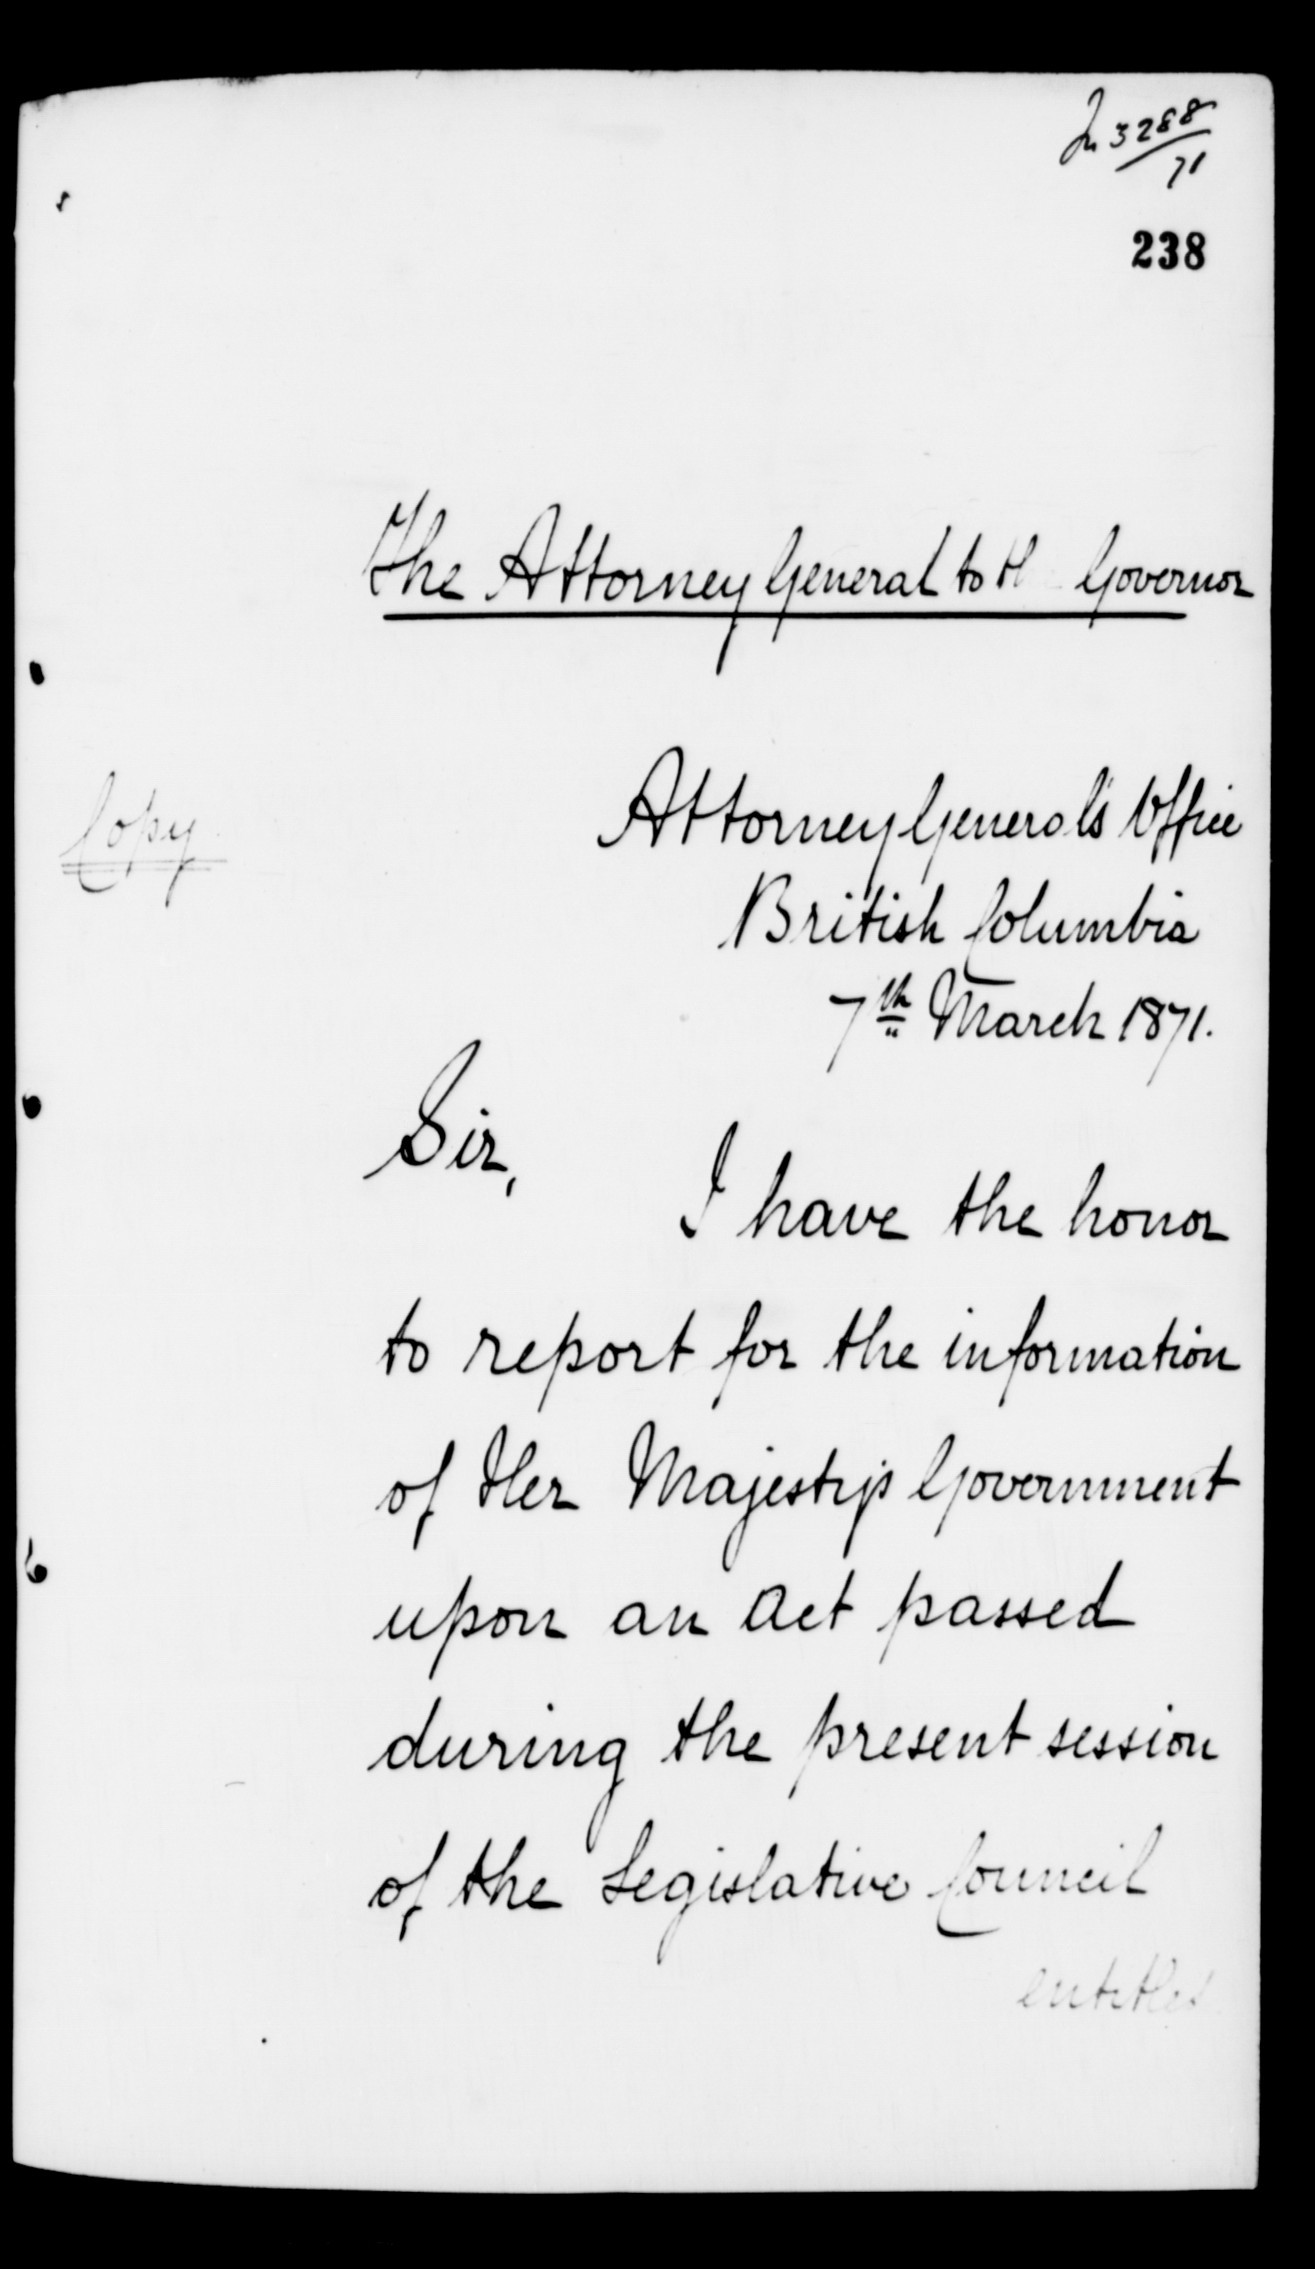 In 3288
71
238
The Attorney General to th Governor
Copy
Attorney General's Office
British Columbia
7th March 1871.
Sir,
I have the honor
to report for the information
of Her Majesty's Government
upon an Act passed
during the present session
of the Legislative Council
entitled